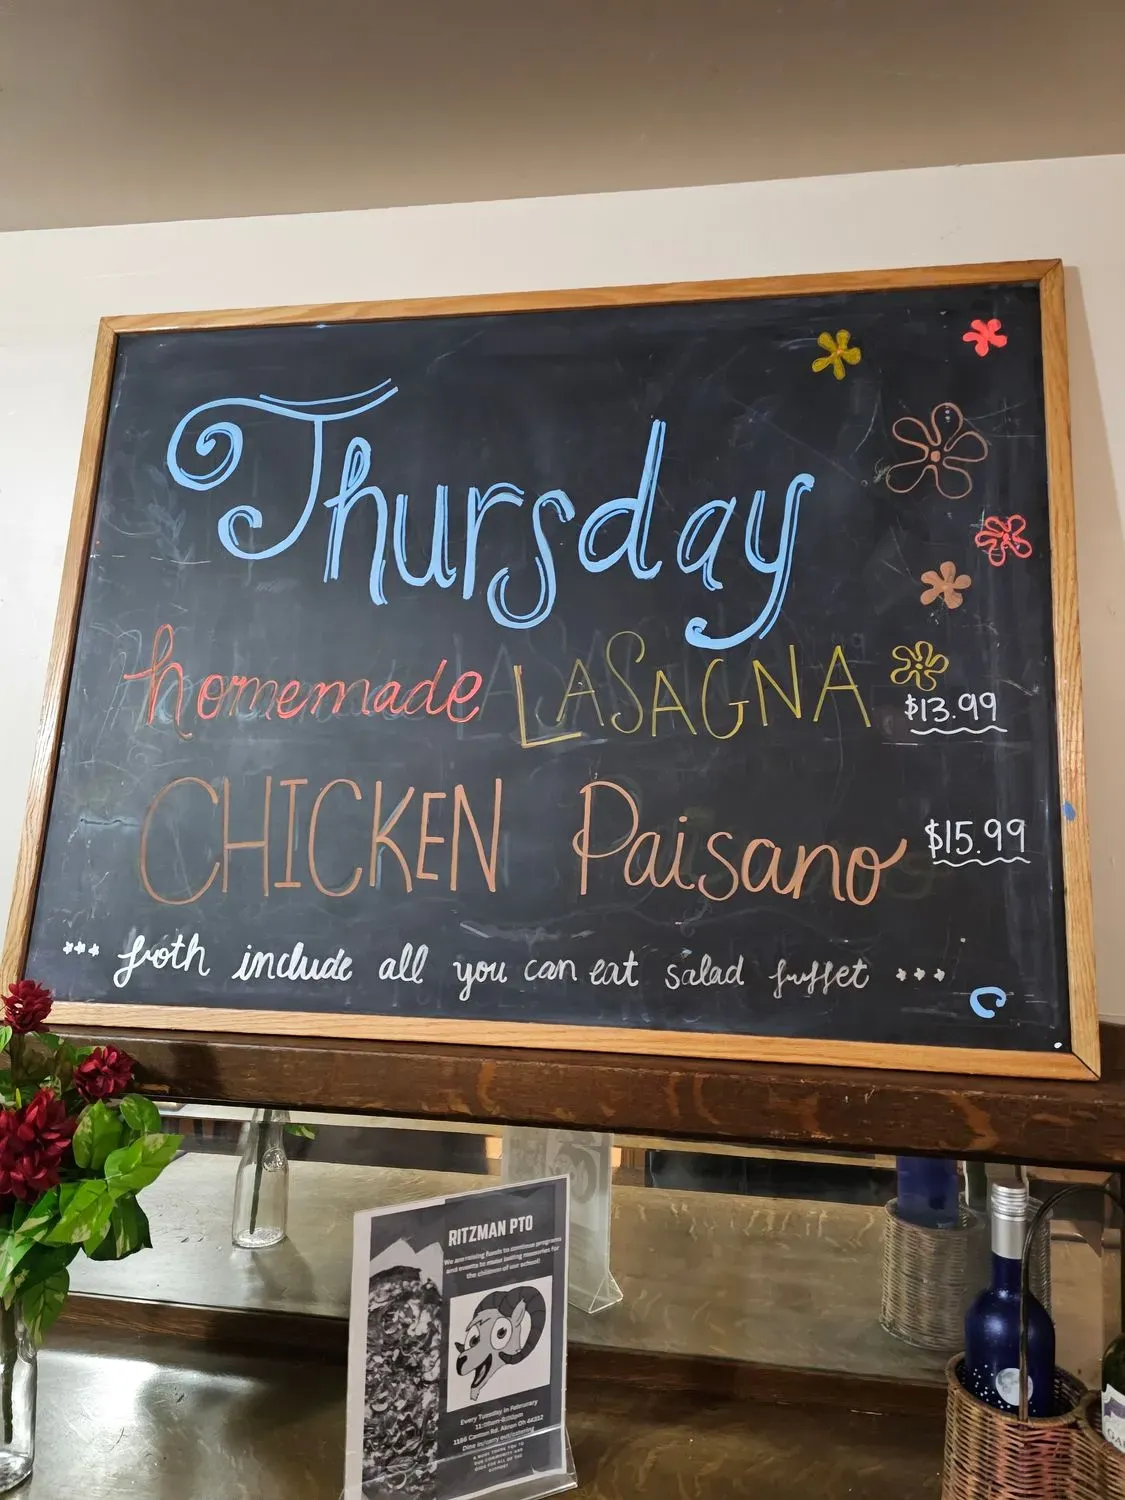 Thursday
homemade LASAGNA $13.99
CHICKEN Paisano $15.99
*** both include all you can eat salad buffet ***
RITZMAN PTO
We are raising funds to continue programs
and events to make lasting memories for
the children of our school!
Every Tuesday in February
11:00am-8:00pm
1186 Canton Rd. Akron Oh 44312
Dine in/carry out/catering
A HUGE THANK YOU TO